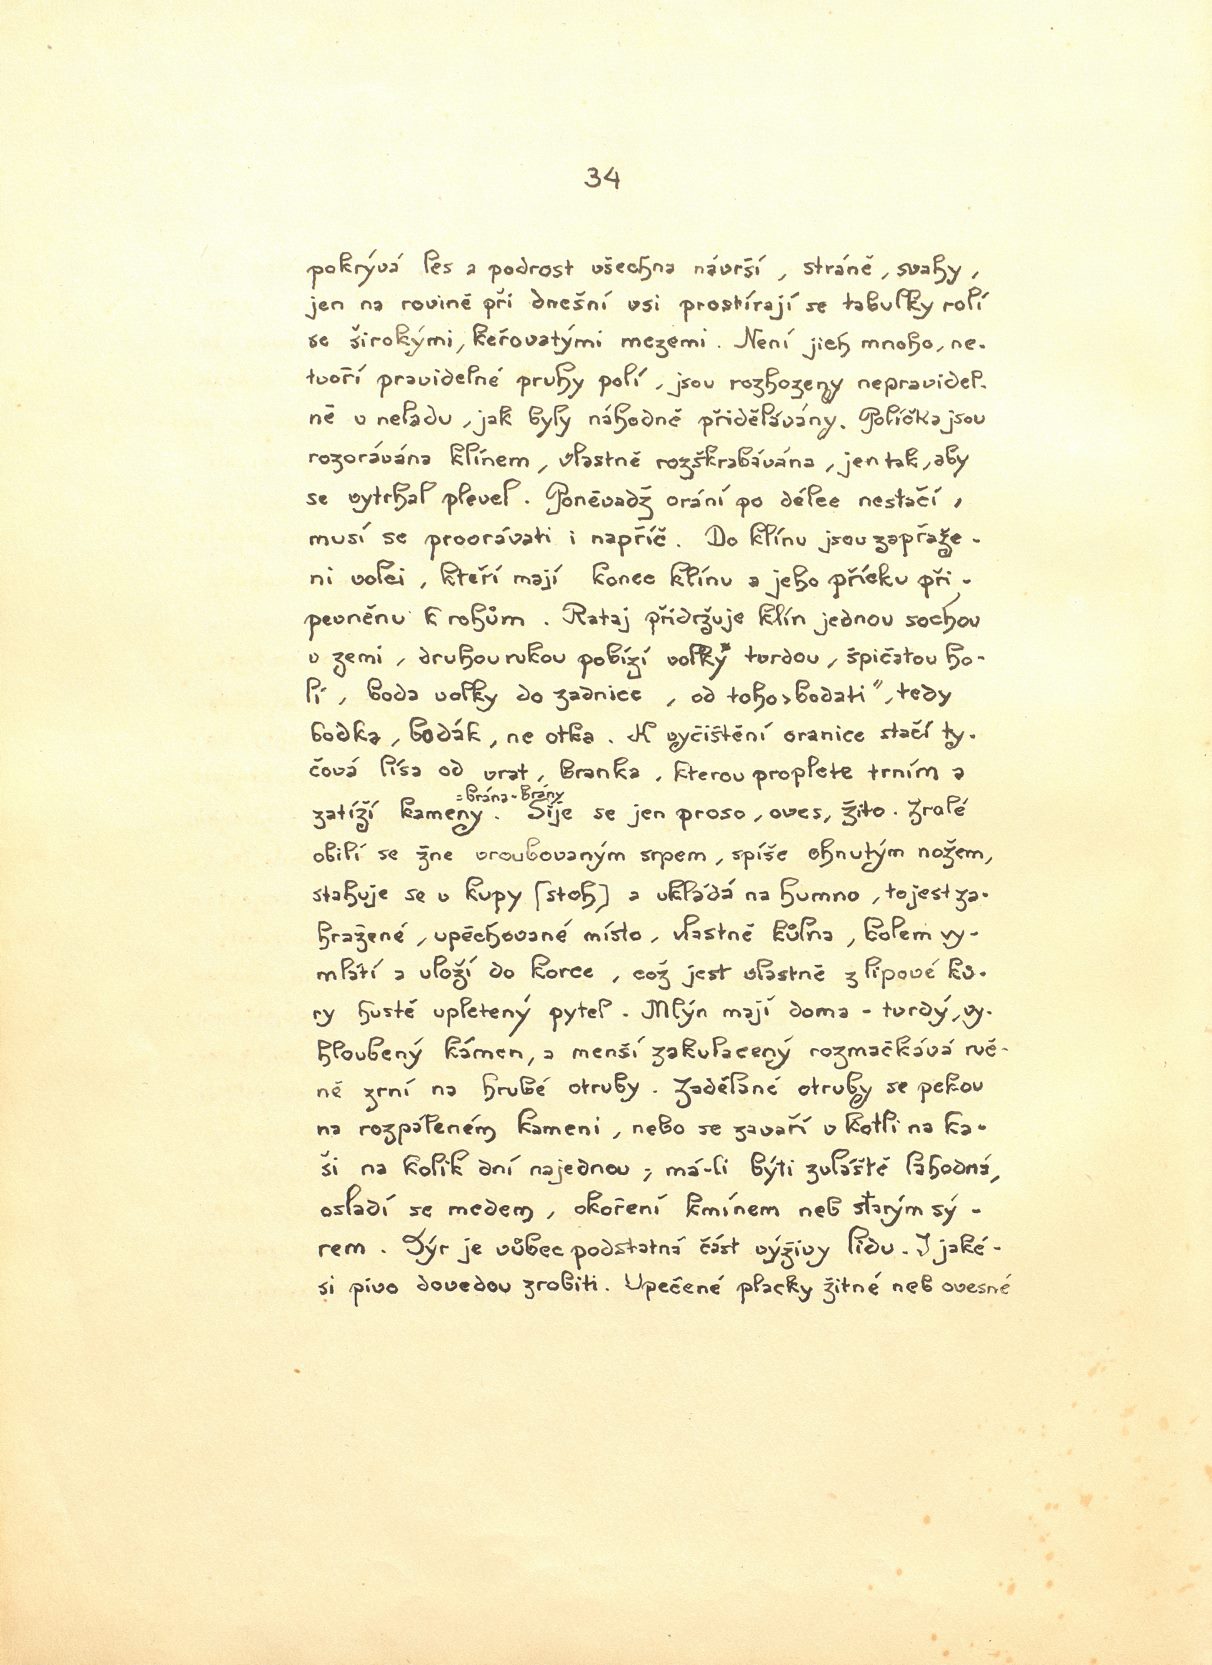 34
pokrývá les a podrost všechna návrší, stráně, svahy,
jen na rovině při dnešní vsi prostírají se tabulky rolí
se širokými, keřovatými mezemi. Není jich mnoho, ne-
tvoří pravidelné pruhy polí, jsou rozhozeny nepravidel-
ně v neladu, jak byly náhodně přidělávány. Políčka jsou
rozorávána klínem, vlastně rozškrabávána, jen tak, aby
se vytrhal plevel. Poněvadž orání po délce nestačí,
musí se proorávati i napříč. Do klínu jsou zapřaže-
ni volci, kteří mají konec klínu a jeho příčku při-
pevněnu k rohům. Rataj přidržuje klín jednou sochou
v zemi, druhou rukou pobízí volky tvrdou, špičatou ho-
lí, bodá volky do zadnice, od toho „bodati", tedy
bodka, bodák, ne otka. K vyčištění oranice stačí ty-
čová lísa od vrat, branka, kterou proplete trním a
=brána-brány
zatíží kameny. Sije se jen proso, oves, žito. Zralé
obilí se žne vroubovaným srpem, spíše ohnutým nožem,
stahuje se v kupy (stoh) a ukládá na humno, to jest za-
hražené, upěchované místo, vlastně kůlna, kolem vy-
mlátí a uloží do korce, což jest vlastně z lipové ků-
ry hustě upletený pytel. Mlýn mají doma - tvrdý, vy-
hloubený kámen, a menší zakulacený rozmačkává ruč-
ně zrní na hrubé otruby. Zadělané otruby se pekou
na rozpáleném kameni, nebo se zavaří v kotli na ka-
ši na kolik dní najednou; má-li býti zvláště lahodná,
osladí se medem, okoření kmínem neb starým sý-
rem. Sýr je vůbec podstatná část výživy lidu. I jaké-
si pivo dovedou zrobiti. Upečené placky žitné neb ovesné